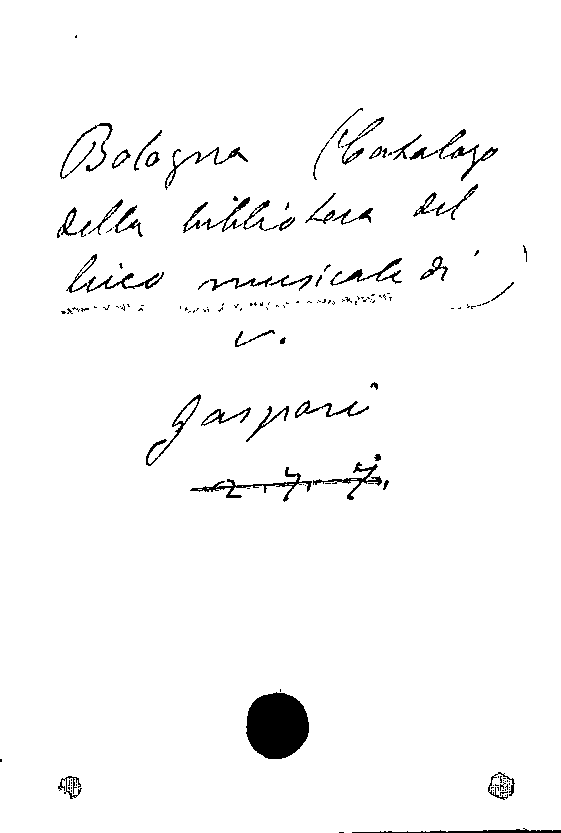 Bologna (Catalogo
della biblioteca del
liceo musicale di )
v.
Gaspari